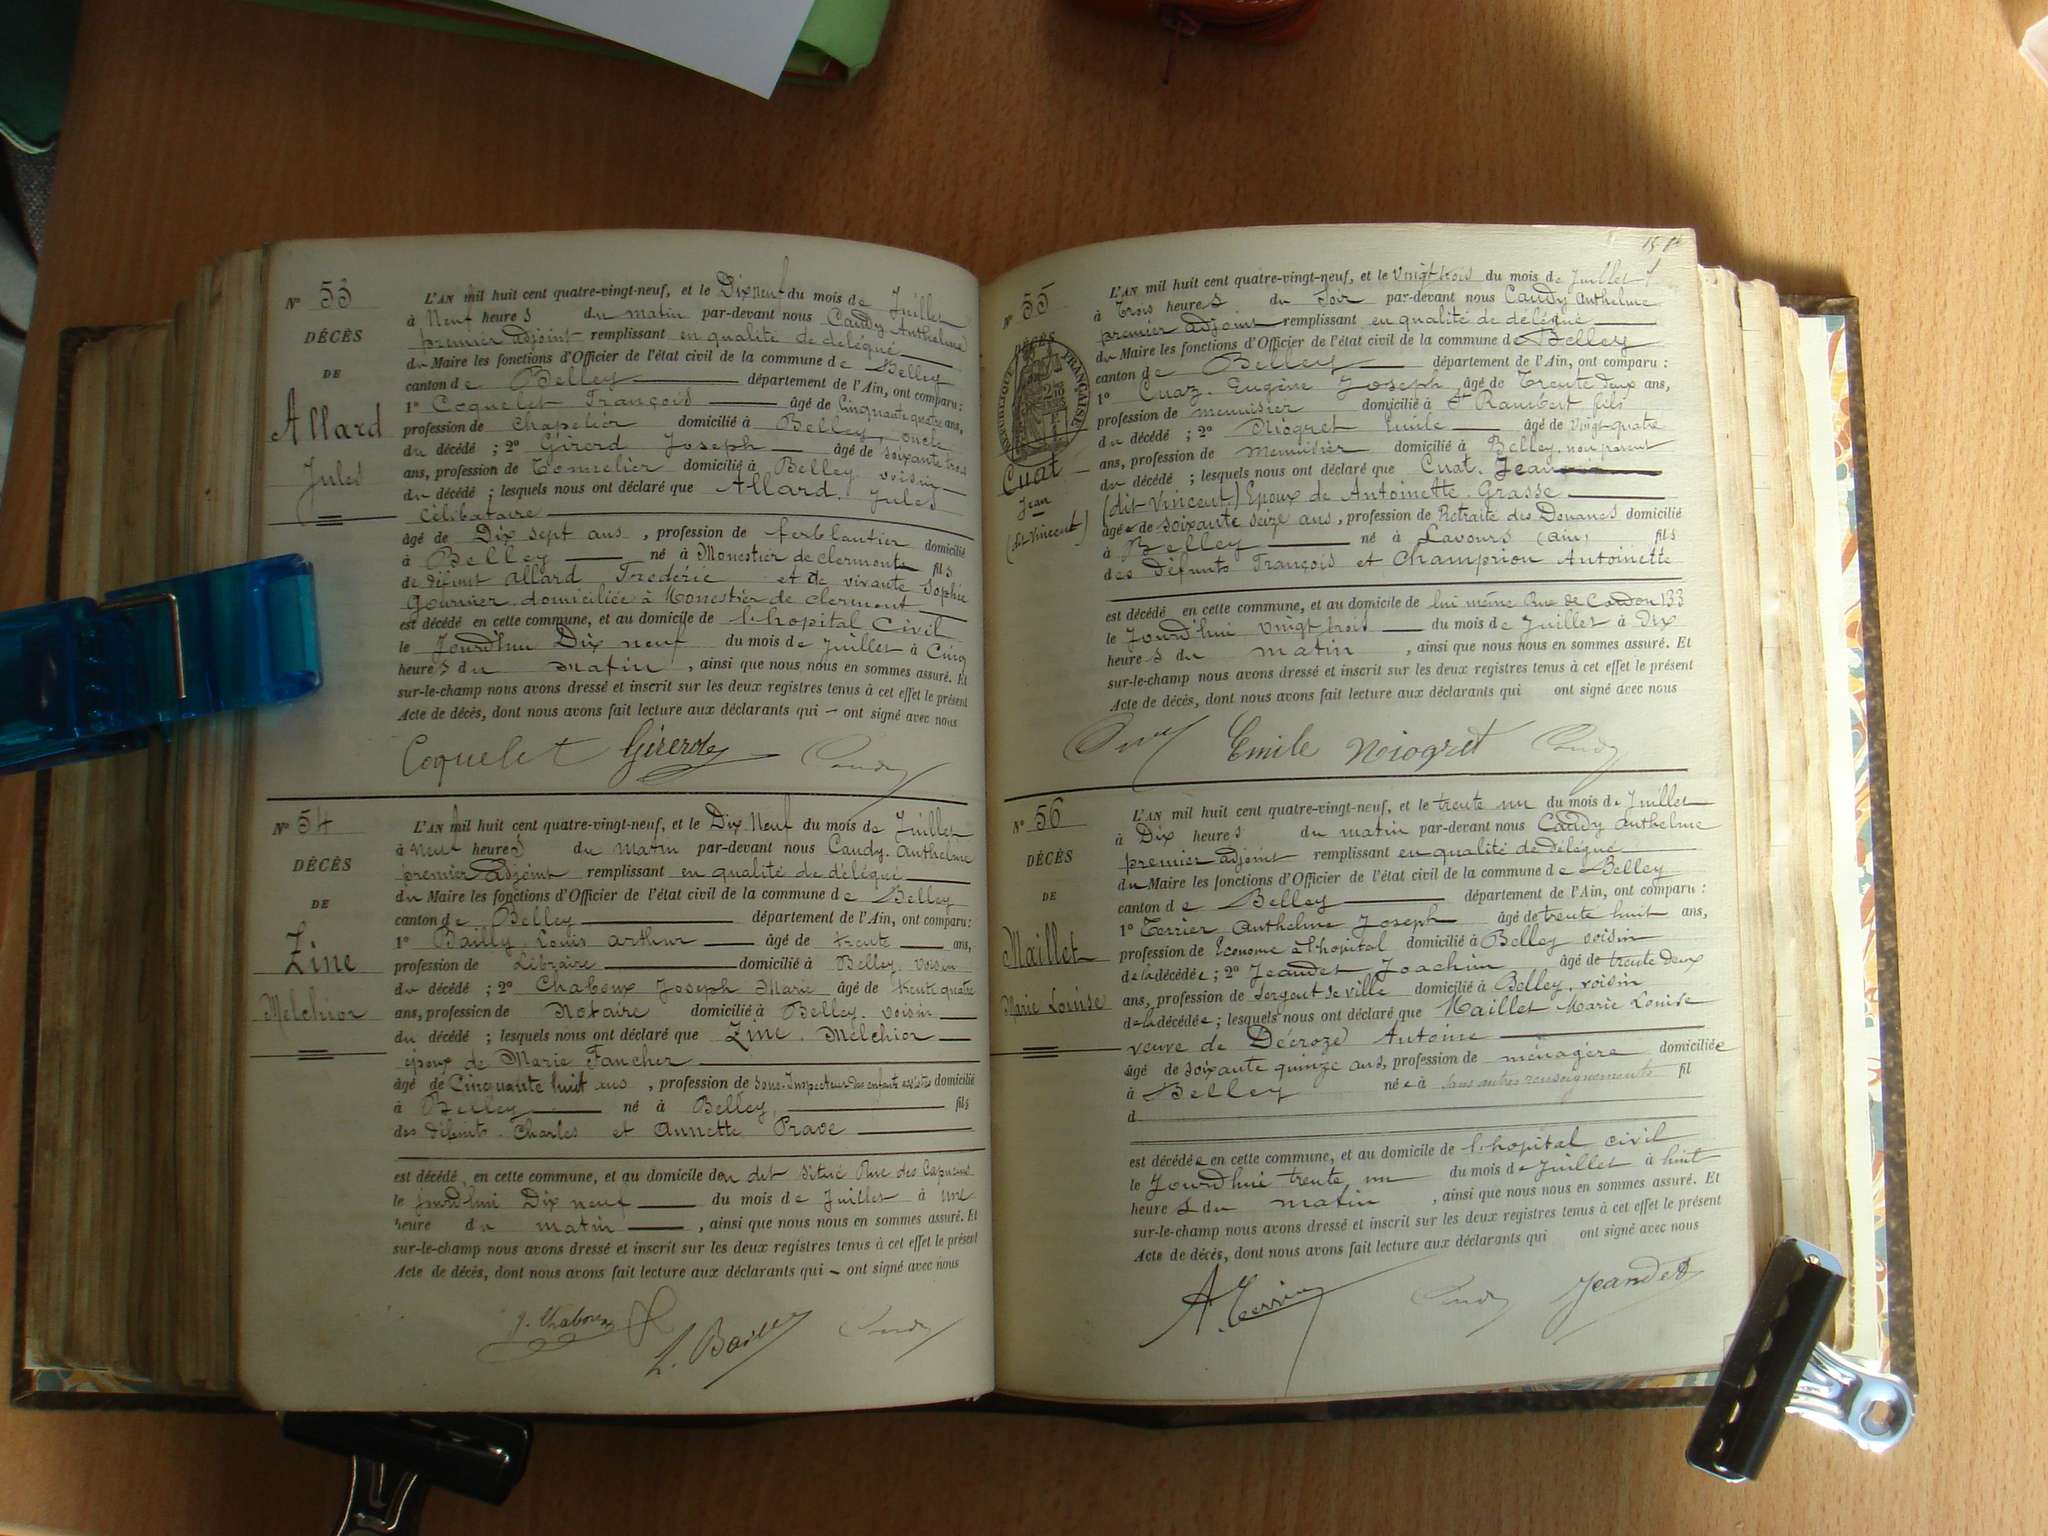 N° 53
DÉCÈS
DE
Allard
Jules
L'AN mil huit cent quatre-vingt-neuf, et le Dix neuf du mois de Juillet
à Neuf heures du matin par-devant nous Caudy Anthelme
premier adjoint remplissant en qualité de délégué
du Maire les fonctions d'Officier de l'état civil de la commune de Belley
canton de Belley département de l'Ain, ont comparu :
1° Coquelet François âgé de Cinquante quatre ans,
profession de Chapelier domicilié à Belley, oncle
du décédé ; 2° Girerd Joseph âgé de soixante trois
ans, profession de Tonnelier domicilié à Belley voisin
du décédé ; lesquels nous ont déclaré que Allard, Jules
Célibataire
âgé de Dix sept ans, profession de ferblantier domicilié
à Belley né à Monestier de clermont fils
de défunt Allard Frédéric et de vivante Sophie
Gournier domiciliée à Monestier de clermont
est décédé en cette commune, et au domicile de l'hopital Civil
le Jourd'hui Dix neuf du mois de Juillet à Cinq
heures du matin, ainsi que nous nous en sommes assuré. Et
sur-le-champ nous avons dressé et inscrit sur les deux registres tenus à cet effet le présent
Acte de décès, dont nous avons fait lecture aux déclarants qui – ont signé avec nous
Coquelet Girerd Caudy
N° 54
DÉCÈS
DE
Zine
Melchior
L'AN mil huit cent quatre-vingt-neuf, et le Dix Neuf du mois de Juillet
à neuf heures du matin par-devant nous Caudy Anthelme
premier adjoint remplissant en qualité de délégué
du Maire les fonctions d'Officier de l'état civil de la commune de Belley
canton de Belley département de l'Ain, ont comparu :
1° Bailly Louis arthur âgé de trente ans,
profession de Libraire domicilié à Belley voisin
du décédé ; 2° Chaboux Joseph Marie âgé de trente quatre
ans, profession de Notaire domicilié à Belley. voisin
du décédé ; lesquels nous ont déclaré que Zine. Melchior
époux de Marie Faucher
âgé de Cinquante huit ans, profession de sous-Inspecteur des enfants assistés domicilié
à Belley né à Belley, fils
des défunts Charles et Annette Prave
est décédé en cette commune, et au domicile du dit situé Rue des Capucins
le jourd'hui Dix neuf du mois de Juillet à une
heure du matin, ainsi que nous nous en sommes assuré. Et
sur-le-champ nous avons dressé et inscrit sur les deux registres tenus à cet effet le présent
Acte de décès, dont nous avons fait lecture aux déclarants qui – ont signé avec nous
J. Chaboux L. Bailly Caudy
N° 55
DÉCÈS
RÉPUBLIQUE FRANÇAISE
Cuat
Jean
(dit Vincent)
L'AN mil huit cent quatre-vingt-neuf, et le vingt trois du mois de Juillet
à Trois heures du Soir par-devant nous Caudy Anthelme
premier adjoint remplissant en qualité de délégué
du Maire les fonctions d'Officier de l'état civil de la commune de Belley
canton de Belley département de l'Ain, ont comparu :
1° Cuaz. Eugène Joseph âgé de Trente deux ans,
profession de menuisier domicilié à St Rambert fils
du décédé ; 2° Niogret Emile âgé de vingt quatre
ans, profession de Menuisier domicilié à Belley. non parent
du décédé ; lesquels nous ont déclaré que Cuat. Jean
(dit Vincent) Epoux de Antoinette Grasse
âgé de soixante seize ans, profession de Retraité des Douanes domicilié
à Belley né à Lavours (ain) fils
des Défunts François et Champrion Antoinette
est décédé en cette commune, et au domicile de lui même Rue de Cordon 133
le Jourd'hui vingt trois du mois de Juillet à Dix
heures du matin, ainsi que nous nous en sommes assuré. Et
sur-le-champ nous avons dressé et inscrit sur les deux registres tenus à cet effet le présent
Acte de décès, dont nous avons fait lecture aux déclarants qui ont signé avec nous
Emile Niogret Caudy
N° 56
DÉCÈS
DE
Maillet
Marie Louise
L'AN mil huit cent quatre-vingt-neuf, et le trente un du mois de Juillet
à Dix heures du matin par-devant nous Caudy Anthelme
premier adjoint remplissant en qualité de délégué
du Maire les fonctions d'Officier de l'état civil de la commune de Belley
canton de Belley département de l'Ain, ont comparu :
1° Terrier Anthelme Joseph âgé de trente huit ans,
profession de Econome à l'hopital domicilié à Belley voisin
de la décédée ; 2° Jeandet Joachim âgé de trente deux
ans, profession de Sergent de ville domicilié à Belley. voisin
de la décédée ; lesquels nous ont déclaré que Maillet Marie Louise
veuve de Décroze Antoine
âgé de soixante quinze ans, profession de ménagère domiciliée
à Belley née à sans autres renseignements fil
d
est décédée en cette commune, et au domicile de l'hopital civil
le Jourd'hui trente un du mois de Juillet à huit
heures du matin, ainsi que nous nous en sommes assuré. Et
sur-le-champ nous avons dressé et inscrit sur les deux registres tenus à cet effet le présent
Acte de décès, dont nous avons fait lecture aux déclarants qui ont signé avec nous
A. Terrier Caudy Jeandet